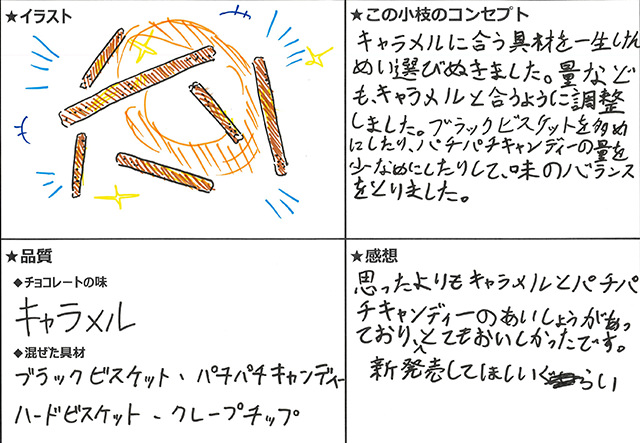 ★イラスト
★この小枝のコンセプト
キャラメルに合う具材を一生けん
めい選びぬきました。量など
も、キャラメルと合うように調整
しました。ブラックビスケットを多め
にしたり、パチパチキャンディーの量を
少なめにしたりして、味のバランス
をとりました。
★品質
◆チョコレートの味
キャラメル
◆混ぜた具材
ブラックビスケット、パチパチキャンディー
ハードビスケット、クレープチップ
★感想
思ったよりもキャラメルとパチパ
チキャンディーのあいしょうがあっ
ており、とてもおいしかったです。
新発売してほしいぐらい